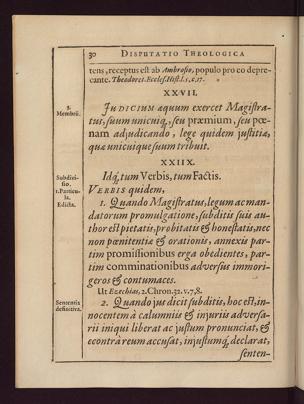 30 DISPUTATIO THEOLOGICA
tens, receptus est ab Ambrosio, populo pro eo depre-
cante. Theodoret. Eccles. Hist. l. 5. c. 17.
XXVII.
3.
Membrū.
JUDICIUM aquum exercet Magistra-
tus, suum unicuiq,, seu præmium, seu pœ-
nam adjudicando, lege quidem justitiæ,
quæ unicuique suum tribuit.
XXIIX.
Subdivi-
sio.
1. Particu-
la.
Edicta.
Idq, tum Verbis, tum Factis.
VERBIS quidem,
1. Quando Magistratus, legum ac man-
datorum promulgatione, subditis suis au-
thor est pietatis, probitatis & honestatis, nec
non pœnitentiæ & orationis, annexis par-
tim promissionibus erga obedientes, par-
tim comminationibus adversus immori-
geros & contumaces.
Ut Ezechias, 2. Chron. 32. v. 7, 8.
Sententia
definitiva.
2. Quando jus dicit subditis, hoc est, in-
nocentem à calumniis & injuriis adversa-
rii iniqui liberat ac justum pronunciat, &
econtrà reum accusat, injustumq, declarat,
senten-